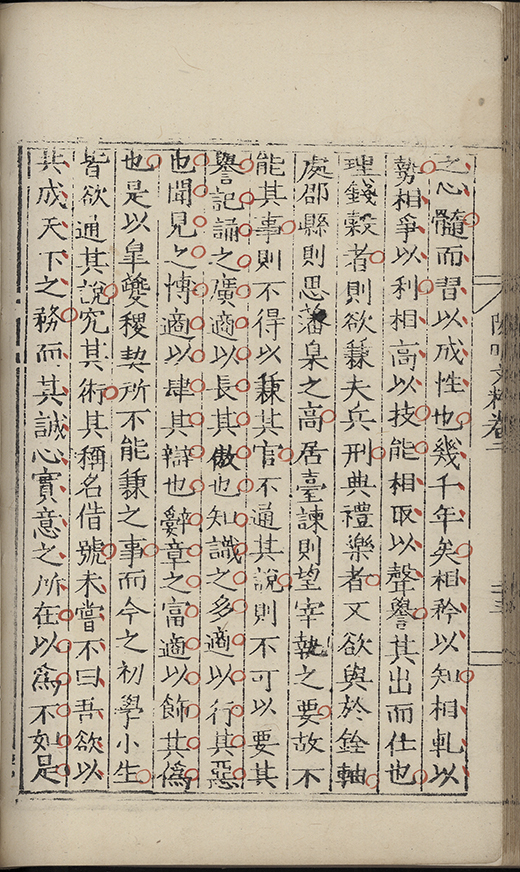 之心髓而習以成性也幾千年矣相矜以知相軋以
勢相爭以利相高以技能相取以聲譽其出而仕也
理錢穀者則欲兼夫兵刑典禮樂者又欲與於銓軸
處郡縣則思藩臬之高居臺諫則望宰執之要故不
能其事則不得以兼其官不通其說則不可以要其
譽記誦之廣適以長其傲也知識之多適以行其惡
也聞見之博適以肆其辯也辭章之富適以飾其偽
也是以皐夔稷契所不能兼之事而今之初學小生
皆欲通其說究其術其稱名借號未嘗不曰吾欲以
共成天下之務而其誠心實意之所在以爲不如是
陽明文粹卷二